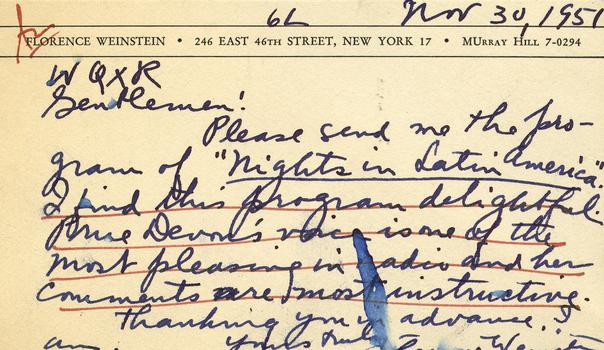 6L Nov 30, 1951
FLORENCE WEINSTEIN • 246 EAST 46TH STREET, NEW YORK 17 • MURRAY HILL 7-0294
WQXR
Gentlemen:
Please send me the pro-
gram of "Nights in Latin America".
I find this program delightful.
Pru Devon's voice is one of the
most pleasing in radio and her
comments are most instructive.
Thanking you in advance, I
am, Yours truly
Weinstein